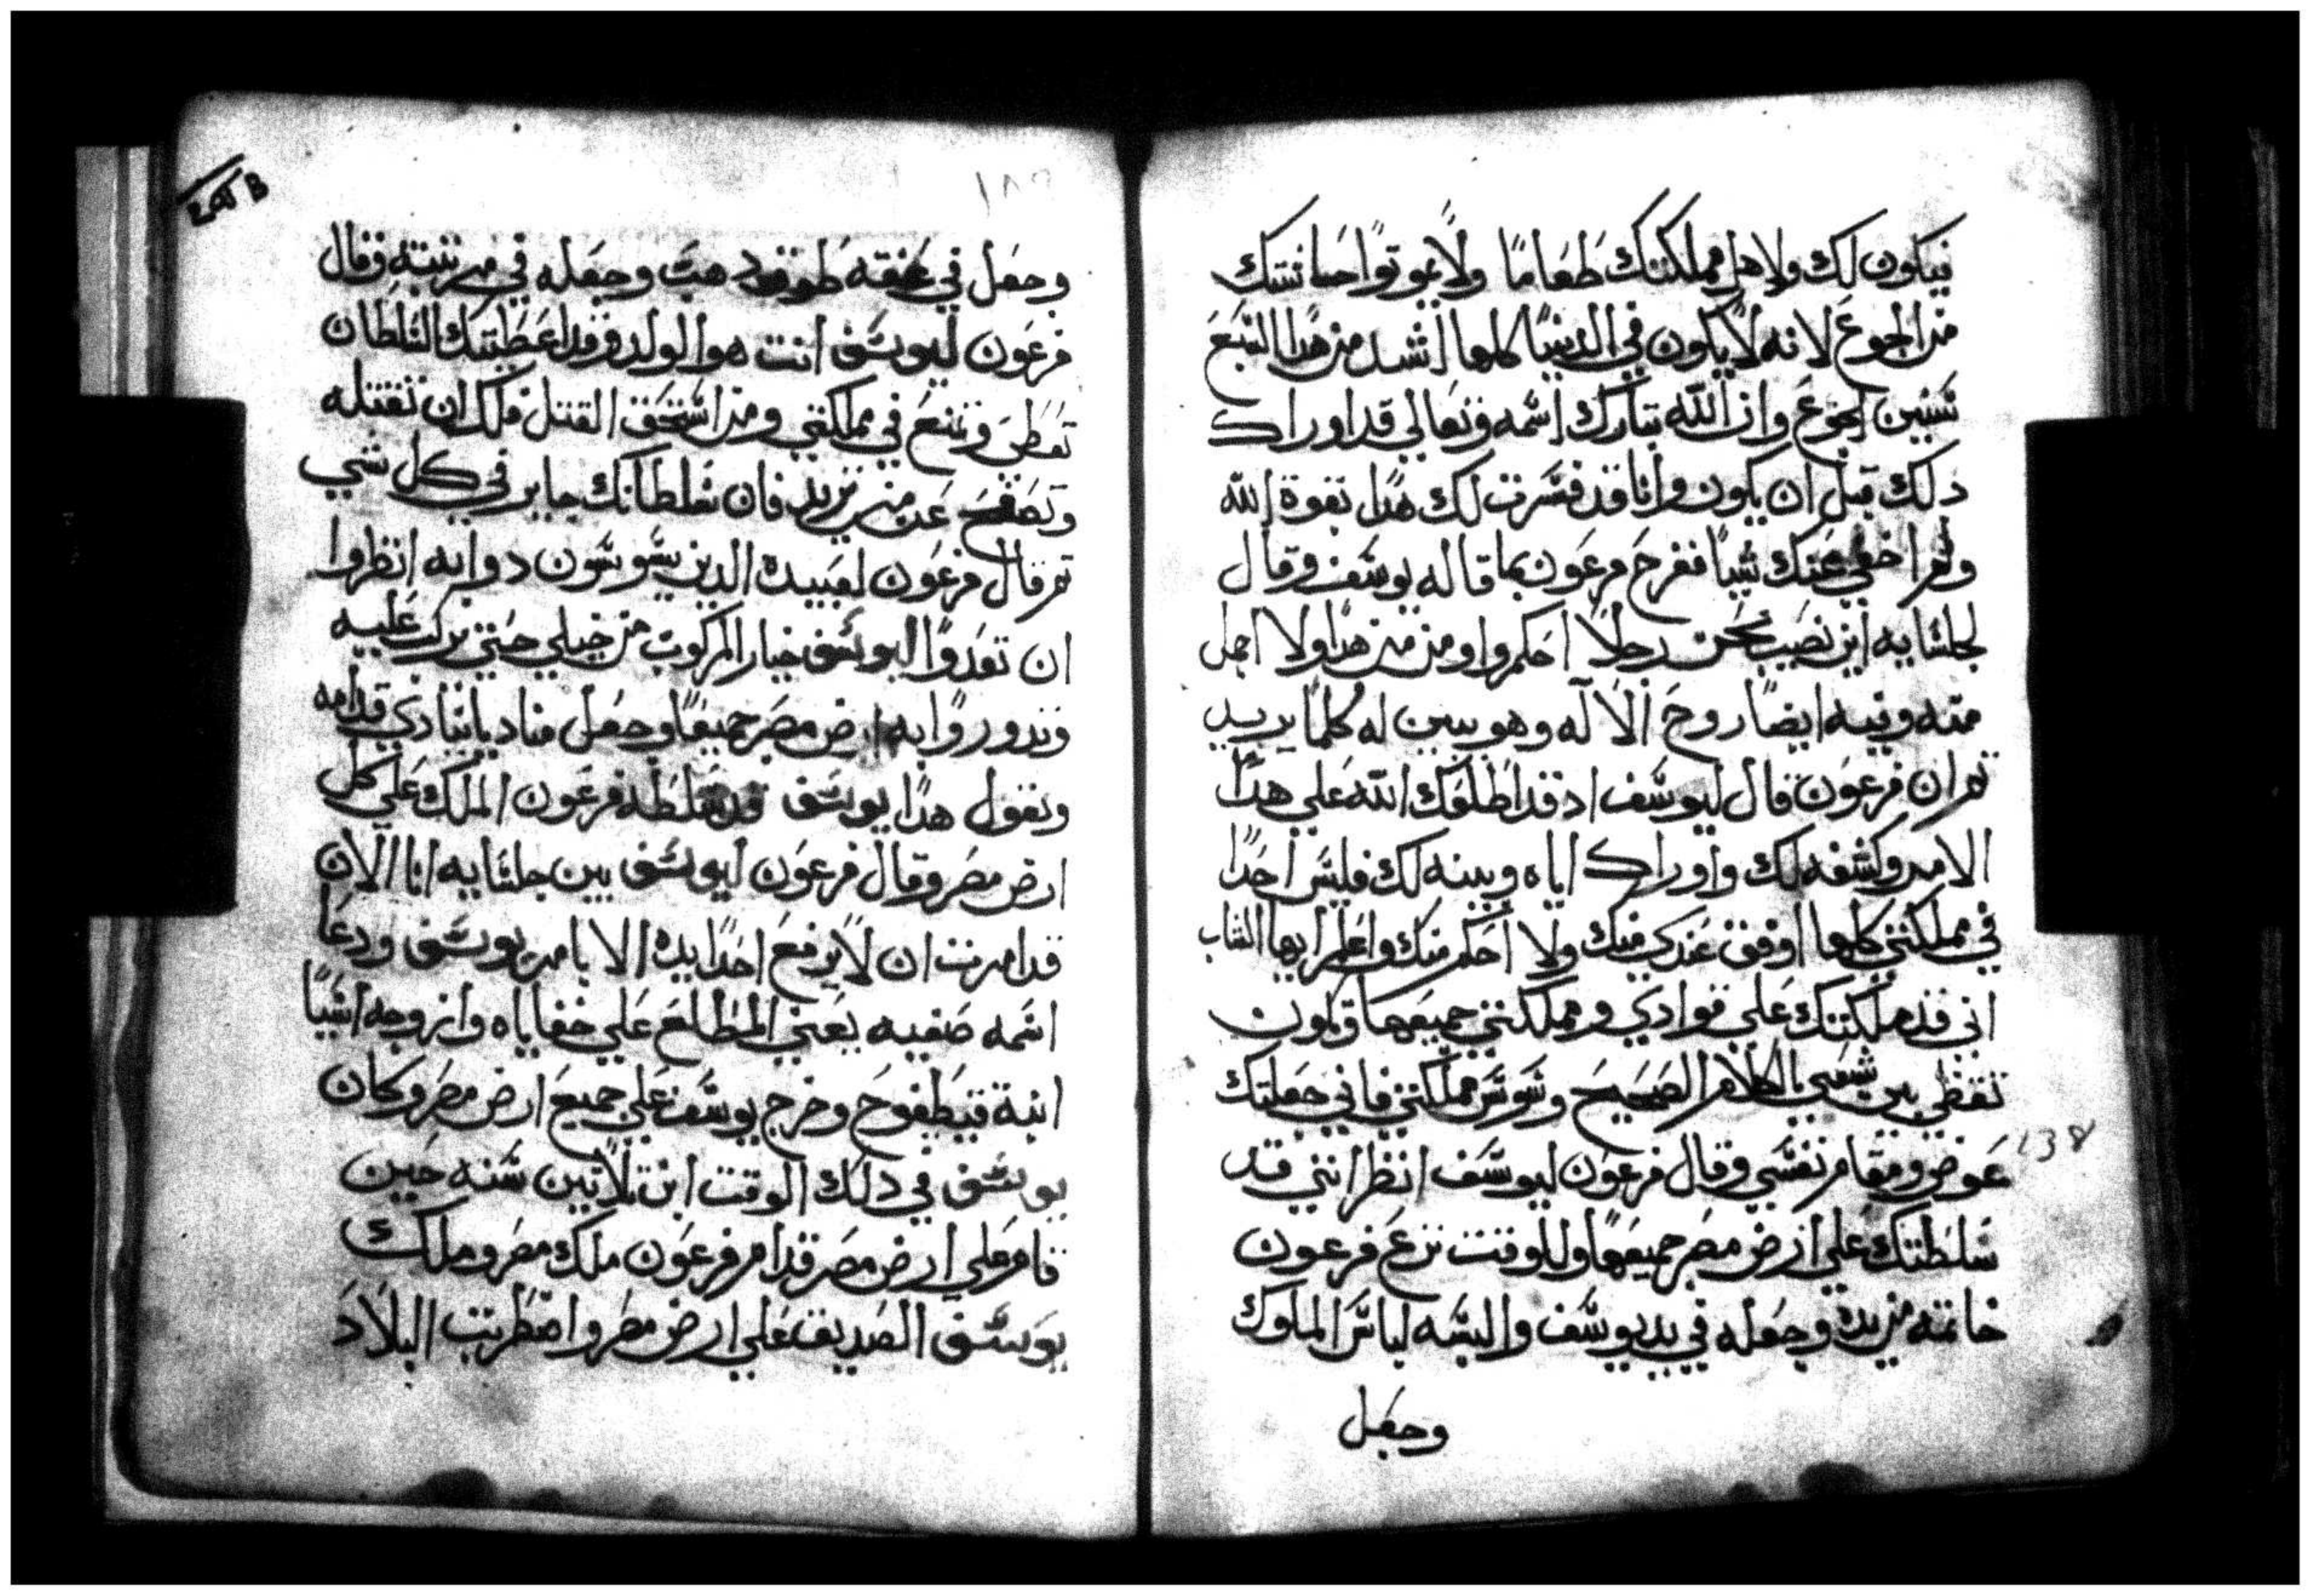 فيكون لك ولاهل مملكتك طعاما ولا يموتوا حاشيتك
من الجوع لانه لا يكون في الدنيا كلها اشد من هدا السبع
سنين الجوع وان الله تبارك اسمه وتعالي قد اوراك
دلك قبل ان يكون وانا قد فسرت لك هدا بقوة الله
ولم اخفي عنك شيا ففرح فرعون بما قاله يوسف وقال
لجلسايه اين نصيب نحن رجلا احكم واومن من هدا ولا اجل
منه وفيه ايضا روح الاله وهو يبين له كلما يريد
تم ان فرعون قال ليوسف اد قد اطلعك الله علي هدا
الامر وكشفه لك واوراك اياه وبينه لك فليس احدا
في مملكتي كلها اوفق عندي منك ولا احكم منك واعلم ايها الشاب
اني قد ملكتك علي فوادي ومملكتي جميعها وتكون
تقضي بين شعبي بالكلام الصحيح وسوس مملكتي فاني جعلتك
عوض ومقام نفسي وقال فرعون ليوسف انظر انني قد
سلطتك علي ارض مصر جميعها وللوقت نزع فرعون
خاتمه من يده وجعله في يد يوسف والبسه لباس الملوك
وجعل
138
وجعل في عنقه طوق دهب وجعله في مرتبته وقال
فرعون ليوسف انت هو الولد وقد اعطيتك السلطان
تعطي وتمنع في مملكتي ومن استحق القتل فلك ان تقتله
وتصفح عن من تريد فان سلطانك جايز في كل شي
تم قال فرعون لعبيده الدين يسوسون دوابه انظروا
ان تعدوا ليوسف خيار المركوب من خيلي حتي يركب عليه
وتدوروا به ارض مصر جميعا وجعل مناديا ينادي قدامه
ويقول هدا يوسف قد سلطه فرعون الملك علي كل
ارض مصر وقال فرعون ليوسف بين جلسايه انا الان
قد امرت ان لا يرفع احدا يده الا بامر يوسف ودعا
اسمه صفيه يعني المطلع علي خفاياه وازوجه اسيا
ابنة قيطفوح وخرج يوسف علي جميع ارض مصر وكان
يوسف في دلك الوقت ابن تلاتين سنه حين
قام علي ارض مصر قدام فرعون ملك مصر وملك
يوسف الصديق علي ارض مصر واضطربت البلاد